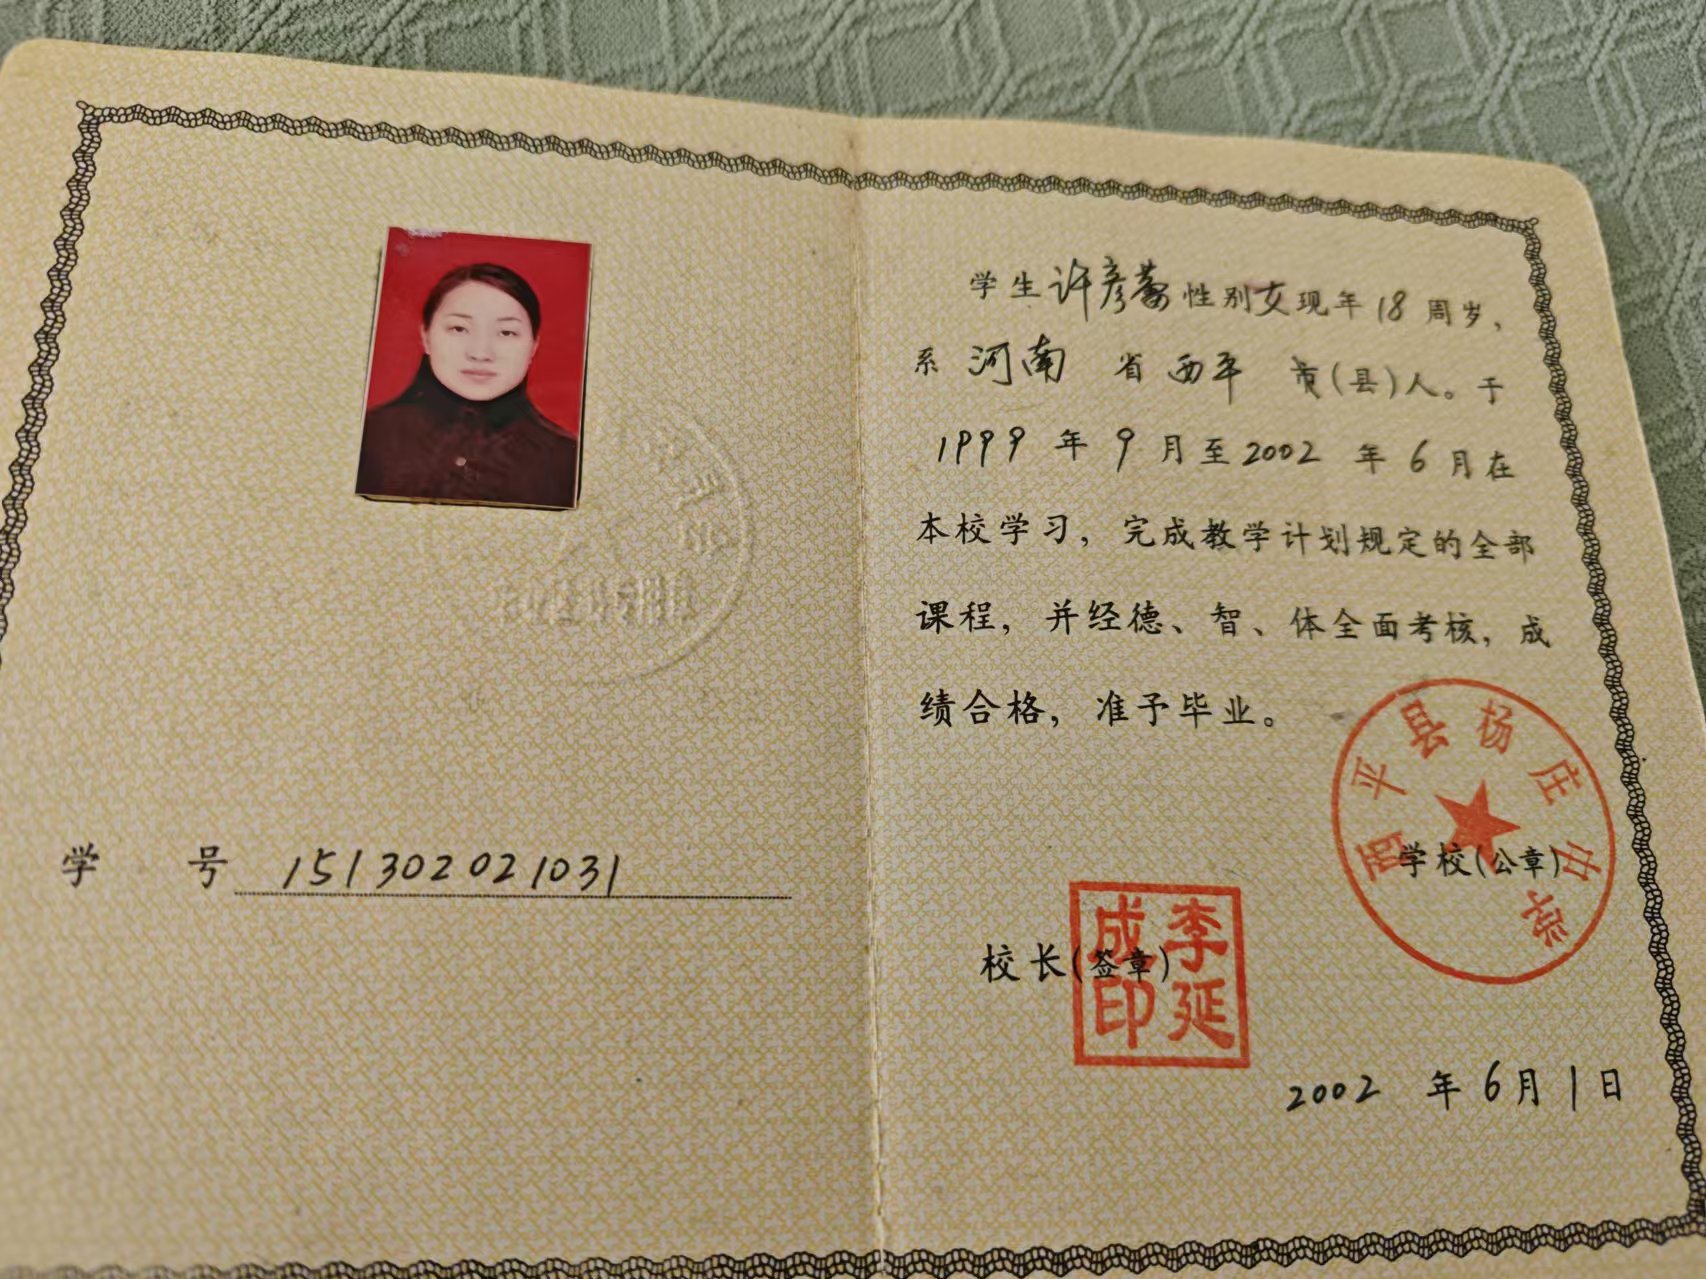 学号 151302021031
学生许彦蕾性别女现年18周岁，
系 河南 省 西平 市(县)人。于
1999 年 9 月至2002 年 6 月在
本校学习，完成教学计划规定的全部
课程，并经德、智、体全面考核，成
绩合格，准予毕业。
西平县杨庄中学
学校(公章)
校长(签章)
李延成印
2002 年 6月1日